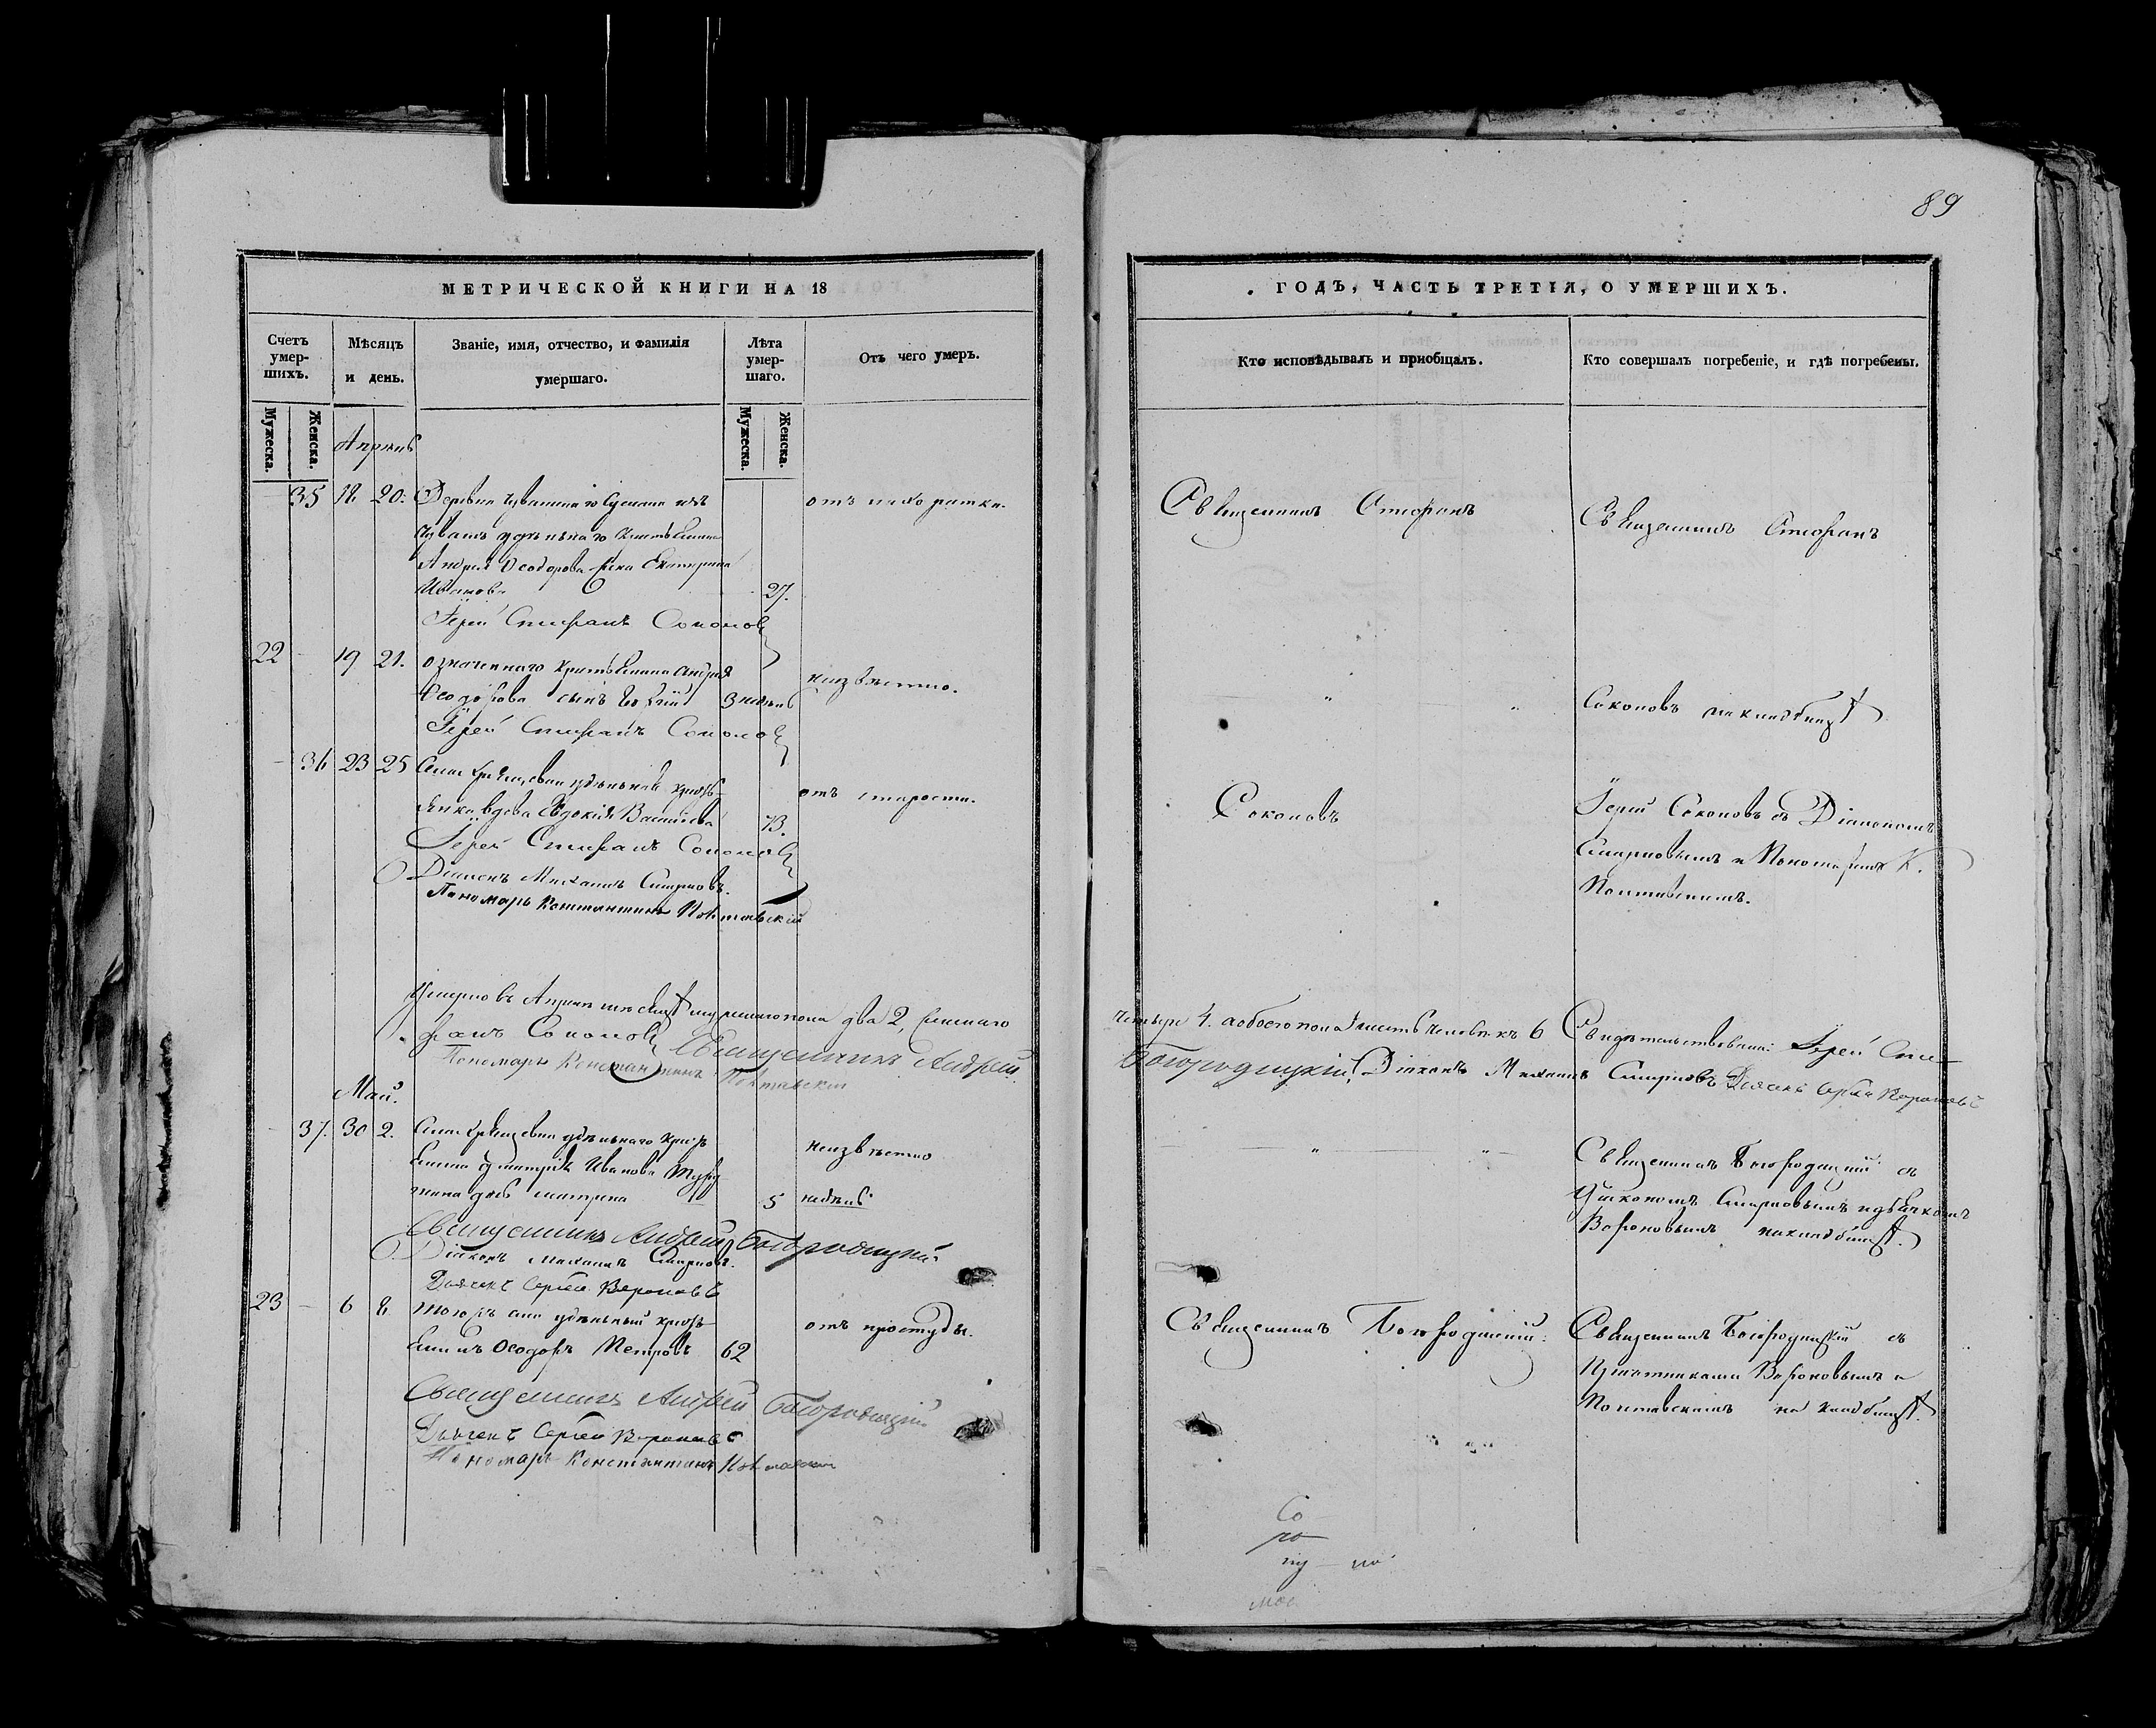 89
МЕТРИЧЕСКОЙ КНИГИ НА 18
Счетъ умер-шихъ.
Мужеска.
Женска.
Мѣсяцъ и день.
Званіе, имя, отчество, и фамилія умершаго.
Лѣта умер-шаго.
Мужеска.
Женска.
Отъ чего умеръ.
ГОДЪ, ЧАСТЬ ТРЕТІЯ, О УМЕРШИХЪ.
Кто исповѣдывалъ и пріобщалъ.
Кто совершалъ погребеніе, и гдѣ погребены.
Апрѣль
35 18 20. Деревни
удѣльнаго крестьянина
Андрея Ѳеодорова жена Екатерина
Иванова 27.
Іерей Стефанъ Соколовъ
Священникъ Стефанъ
Священникъ Стефанъ
22 - 19 21. означеннаго крестьянина Андрея
Ѳеодорова сынъ 3 недѣль
неизвѣстно.
Іерей Стефанъ Соколовъ
" "
Соколовъ на кладбищѣ
- 36 23 25 удѣльная кресть-
янка вдова Евдокія Васильева 73.
отъ старости.
Іерей Стефанъ Соколовъ
Діаконъ Михаилъ Смирновъ.
Пономарь Константинъ Полтавскій
Соколовъ
Іерей Соколовъ съ Діакономъ
Смирновымъ и Пономаремъ К.
Полтавскимъ.
Апрѣлѣ мѣсяцѣ мужескаго пола два 2, женскаго
четыре 4. а обоего пола шесть человѣкъ 6 Свидѣтельствовали: Іерей Сте-
фанъ Соколовъ Священникъ Андрей
Богородицкій, Діаконъ Михаилъ Смирновъ Дьячекъ Сергѣй Вороновъ
Пономарь Константинъ Полтавскій
Май.
- 37. 30 2. удѣльнаго кресть
янина Димитрія Иванова
дочь Матрена 5 недѣль
неизвѣстно
Священникъ Андрей Богородицкій
Діаконъ Михаилъ Смирновъ.
Дьячекъ Сергѣй Вороновъ
" "
Священникъ Богородицкій съ
Діакономъ Смирновымъ и дьячкомъ
Вороновымъ на кладбищѣ.
23 - 6 8 тогожъ села удѣльный кресть-
янинъ Ѳеодоръ Петровъ 62
отъ простуды.
Священникъ Андрей Богородицкій
Дьячекъ Сергѣй Вороновъ
Пономарь Константинъ Полтавскій
Священникъ Богородицкій.
Священникъ Богородицкій съ
Причетниками Вороновымъ и
Полтавскимъ на кладбищѣ.